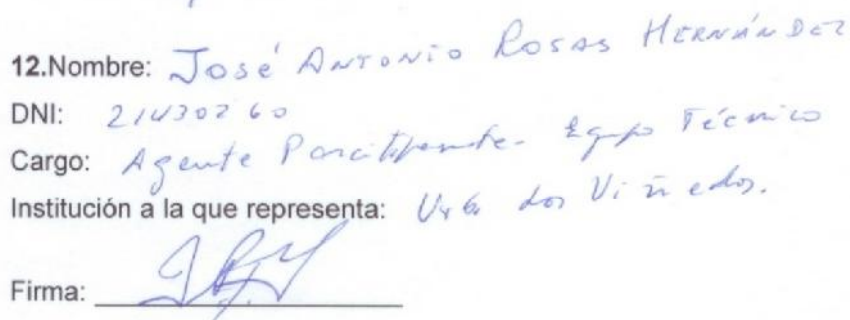 12.Nombre: José Antonio Rosas Hernández
DNI: 21430260
Cargo: Agente Participante - Equipo Técnico
Institución a la que representa: Urb. Los Viñedos.
Firma: